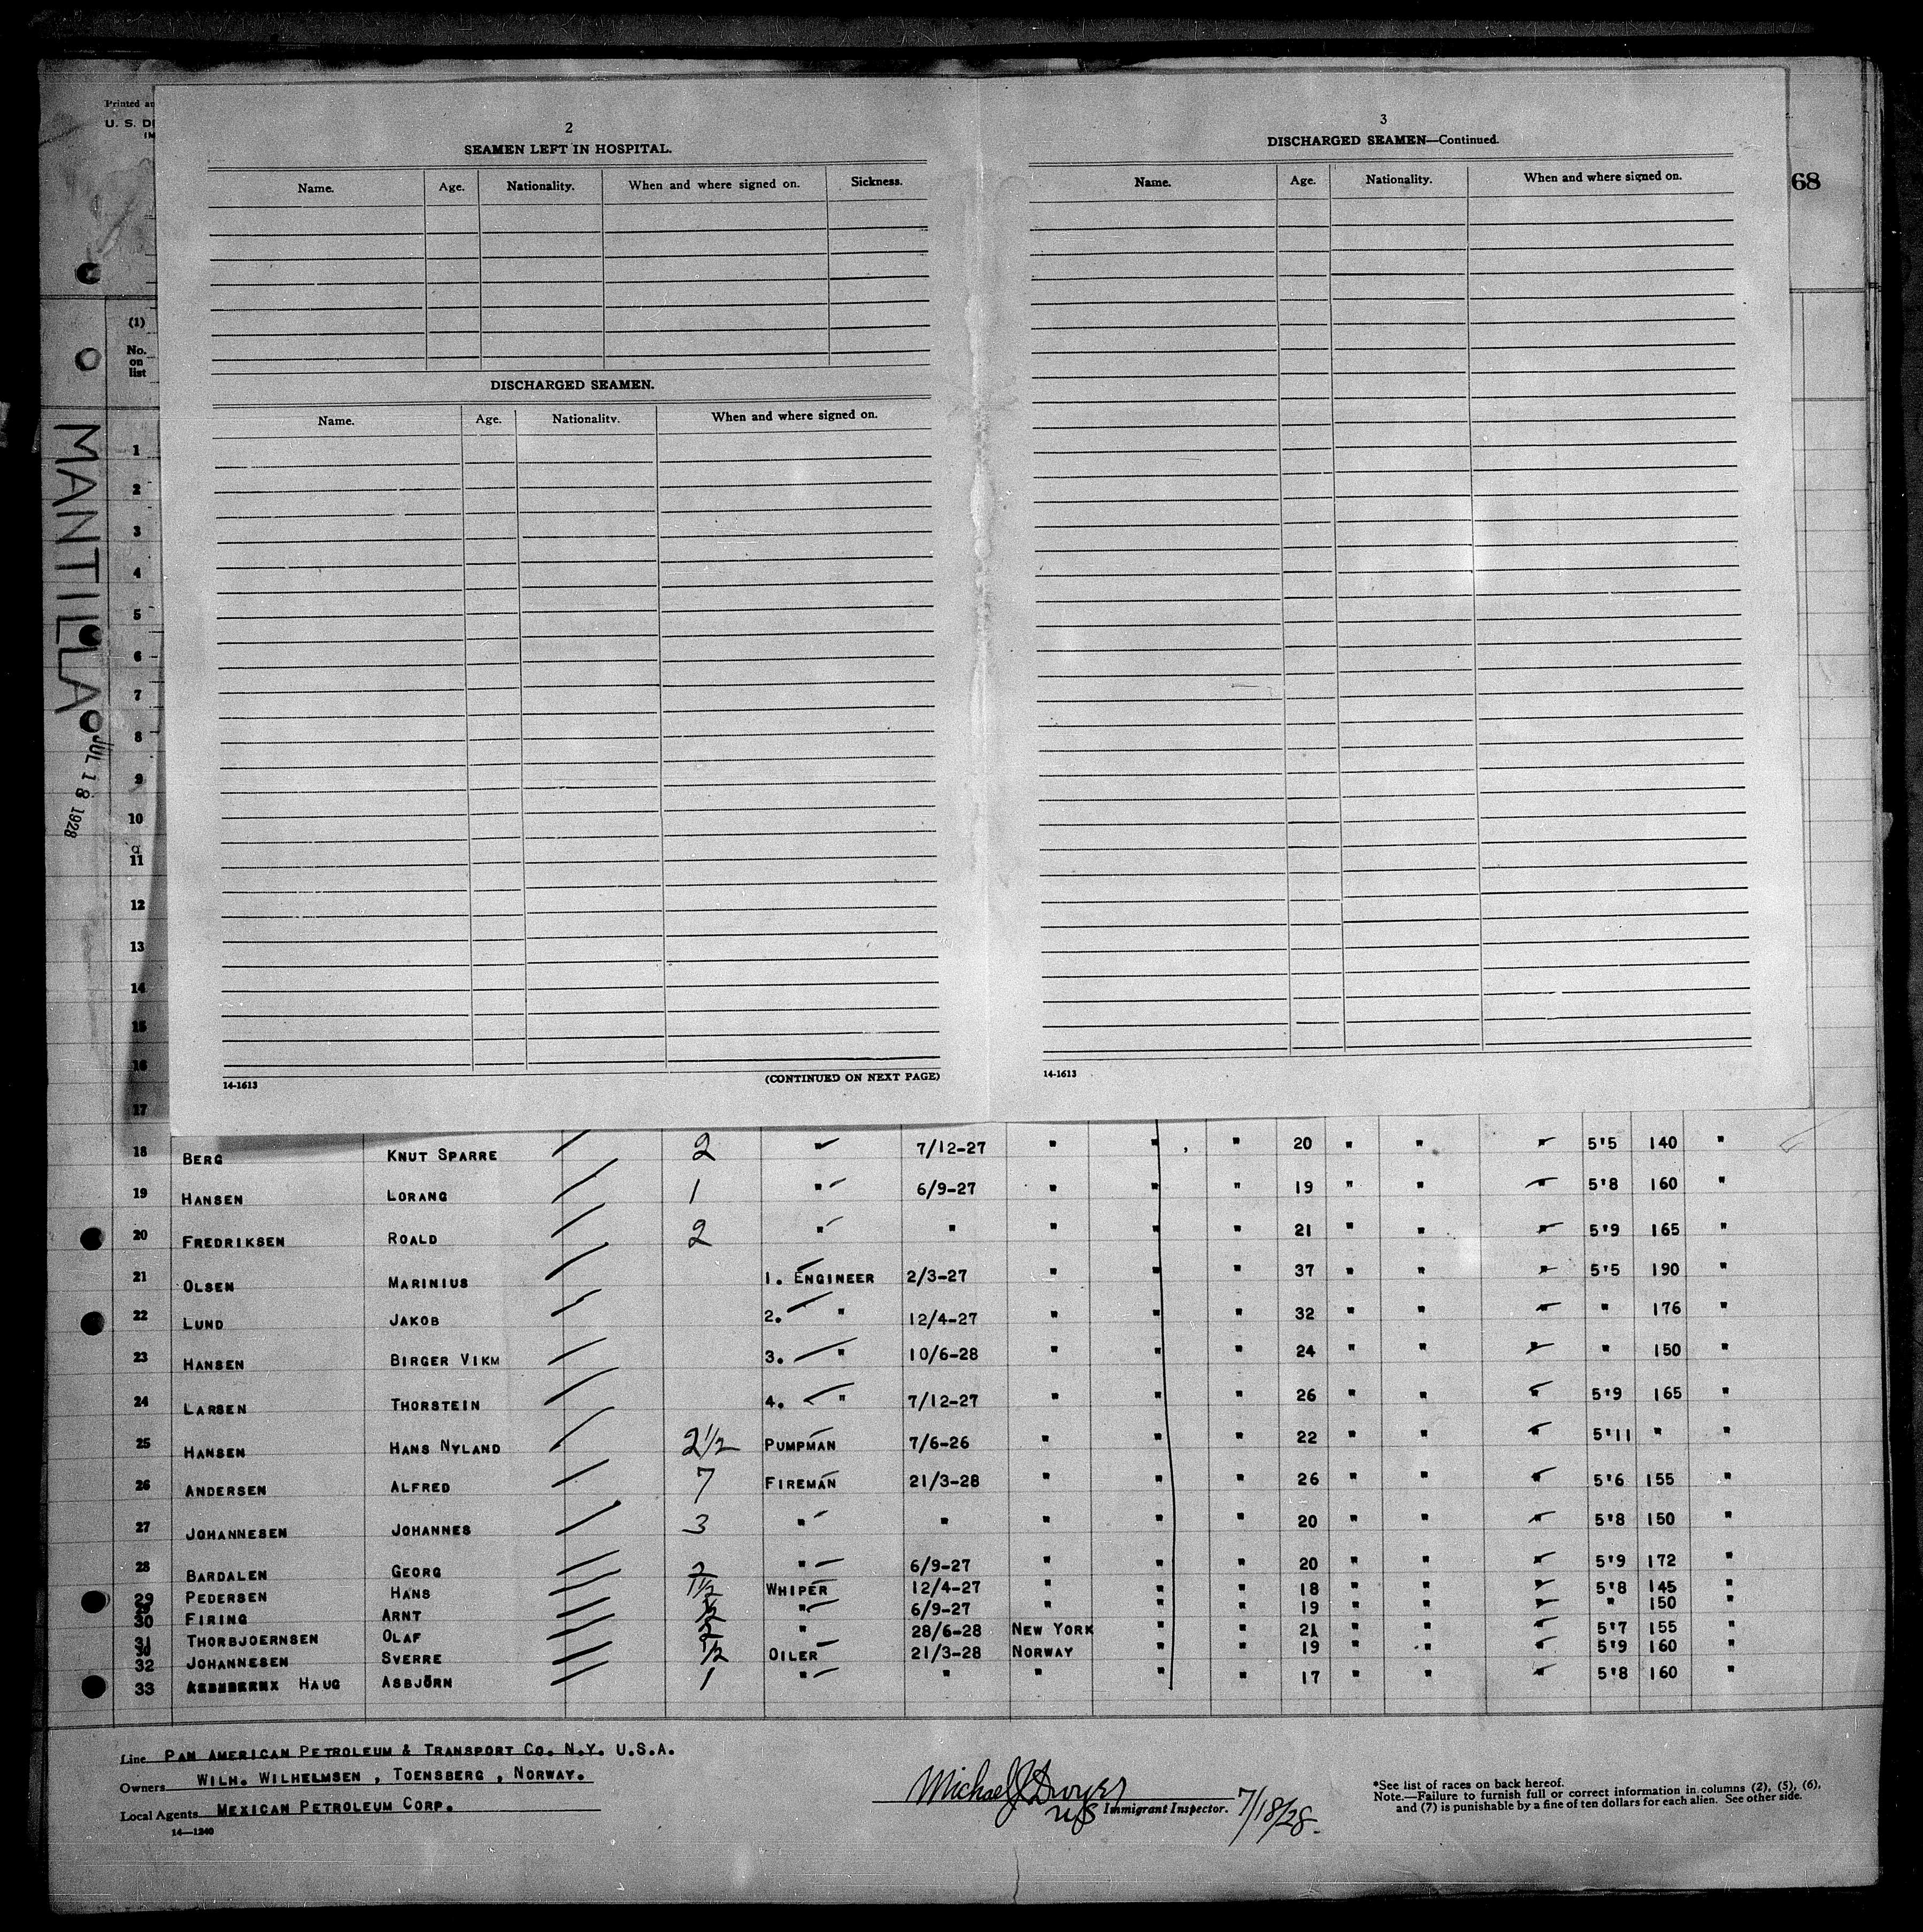 Printed
U. S.
68
2
SEAMEN LEFT IN HOSPITAL.
Name. Age. Nationality. When and where signed on. Sickness.
DISCHARGED SEAMEN.
Name. Age. Nationality. When and where signed on.
14-1613 (CONTINUED ON NEXT PAGE)
3
DISCHARGED SEAMEN—Continued.
Name. Age. Nationality. When and where signed on.
14-1613
(1)
No.
on
list
MANTILLA
JUL 18 1928
1
2
3
4
5
6
7
8
9
10
11
12
13
14
15
16
17
18 BERG KNUT SPARRE 2 " 7/12-27 " " " 20 " " " 5'5 140 "
19 HANSEN LORANG 1 " 6/9-27 " " " 19 " " " 5'8 160 "
20 FREDRIKSEN ROALD 2 " " " " " 21 " " " 5'9 165 "
21 OLSEN MARINIUS 1. ENGINEER 2/3-27 " " " 37 " " " 5'5 190 "
22 LUND JAKOB 2. " 12/4-27 " " " 32 " " " " 176 "
23 HANSEN BIRGER VIKM 3. " 10/6-28 " " " 24 " " " " 150 "
24 LARSEN THORSTEIN 4. " 7/12-27 " " " 26 " " " 5'9 165 "
25 HANSEN HANS NYLAND 2 1/2 PUMPMAN 7/6-26 " " " 22 " " " 5'11 " "
26 ANDERSEN ALFRED 7 FIREMAN 21/3-28 " " " 26 " " " 5'6 155 "
27 JOHANNESEN JOHANNES 3 " " " " " 20 " " " 5'8 150 "
28 BARDALEN GEORG 2 " 6/9-27 " " " 20 " " " 5'9 172 "
29 PEDERSEN HANS 1 1/2 WHIPER 12/4-27 " " " 18 " " " 5'8 145 "
30 FIRING ARNT " 6/9-27 " " " 19 " " " " 150 "
31 THORBJOERNSEN OLAF " 28/6-28 NEW YORK " " 21 " " " 5'7 155 "
32 JOHANNESEN SVERRE 1/2 OILER 21/3-28 NORWAY " " 19 " " " 5'9 160 "
33 HAUG ASBJÖRN 1 " " " " " 17 " " " 5'8 160 "
Line PAN AMERICAN PETROLEUM & TRANSPORT CO. N.Y. U.S.A.
Owners WILH. WILHELMSEN, TOENSBERG, NORWAY.
Local Agents MEXICAN PETROLEUM CORP.
14—1240
Michael J Dwyer
US Immigrant Inspector. 7/18/28.
*See list of races on back hereof.
Note.—Failure to furnish full or correct information in columns (2), (5), (6),
and (7) is punishable by a fine of ten dollars for each alien. See other side.